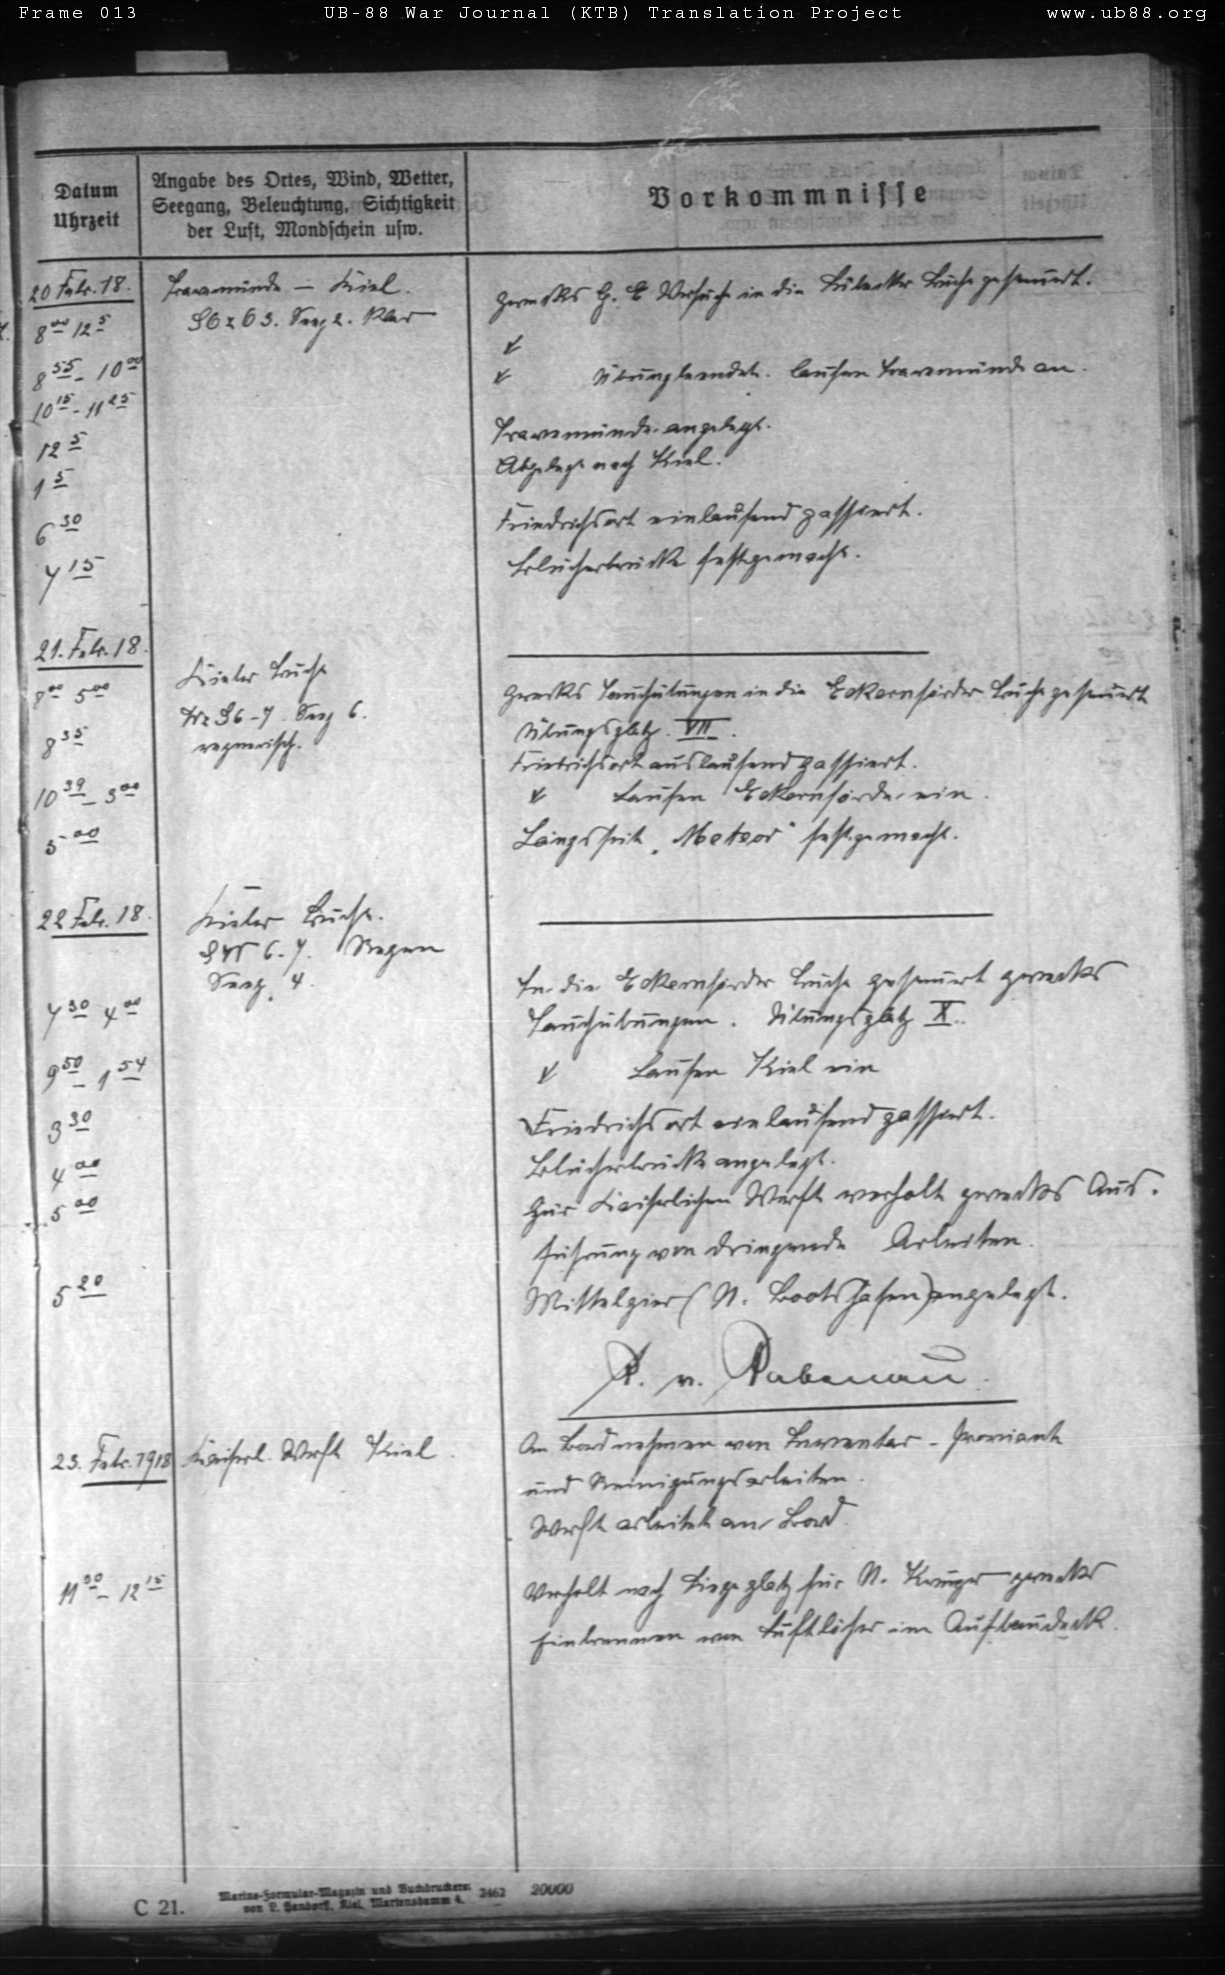 Frame 013 UB-88 War Journal (KTB) Translation Project www.ub88.org
Datum
Uhrzeit
Angabe des Ortes, Wind, Wetter,
Seegang, Beleuchtung, Sichtigkeit
der Luft, Mondschein usw.
Vorkommnisse
20 Febr. 18. Travemünde – Kiel. zwecks G. E Versuche in die Lübecker Bucht gesteuert.
8⁰⁰ 12⁵ S6z O3. Seeg 2. Klar
8⁵⁵ – 10⁰⁰
10¹⁵ – 11²⁵ Übung beendet. laufen Travemünde an.
12⁵ Travemünde angelegt.
1⁵ Abgelegt nach Kiel.
6³⁰ Friedrichsort einlaufend passiert.
7¹⁵ Blücherbrücke festgemacht.
21. Febr. 18. Kieler Bucht
8⁰⁰ 5⁰⁰ S6-7. Seeg 6. zwecks Tauchübungen in die Eckernförder Bucht gesteuert
regnerisch. Übungsplatz VII.
8³⁵ Friedrichsort auslaufend passiert.
10³⁹ – 3⁰⁰ Laufen Eckernförde ein.
5⁰⁰ Längsseit „Meteor" festgemacht.
22 Febr. 18. Kieler Bucht.
6.7. Regen
Seeg. 4. In die Eckernförder Bucht gesteuert zwecks
7³⁰ 4⁰⁰ Tauchübungen. Übungsplatz X.
9⁵⁰ – 1⁵⁴ Laufen Kiel ein
3³⁰ Friedrichsort einlaufend passiert.
4⁰⁰ Blücherbrücke angelegt.
5⁰⁰ Zur Kaiserlichen Werft verholt zwecks Aus-
führung von dringende Arbeiten.
5²⁰ Mittelpier (N. Bootshafen) angelegt.
R. v. Rabenau.
23. Febr. 1918 Kaiserl. Werft Kiel. An Bord nehmen von Inventar – Proviant
und Reinigungsarbeiten.
Werft arbeitet an Bord.
11³⁰ – 12¹⁵ Verholt nach Liegeplatz für N. zwecks
Einbrennen von Luftlöcher im Aufbaudeck.
C 21.
Marine-Formular-Magazin und Buchdruckerei
von L. Handorff, Kiel, Martensdamm 4. 2462 20000